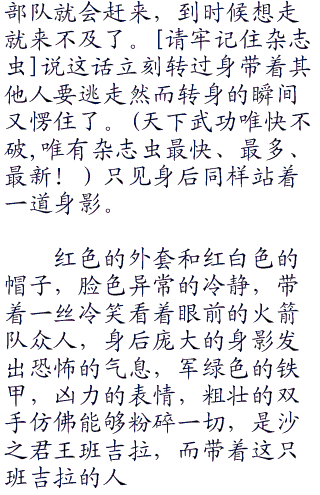 部队就会赶来，到时候想走
就来不及了。[请牢记住杂志
虫]说这话立刻转过身带着其
他人要逃走然而转身的瞬间
又愣住了。(天下武功唯快不
破,唯有杂志虫最快、最多、
最新！ )只见身后同样站着
一道身影。
红色的外套和红白色的
帽子，脸色异常的冷静，带
着一丝冷笑看着眼前的火箭
队众人，身后庞大的身影发
出恐怖的气息，军绿色的铁
甲，凶力的表情，粗壮的双
手仿佛能够粉碎一切，是沙
之君王班吉拉，而带着这只
班吉拉的人